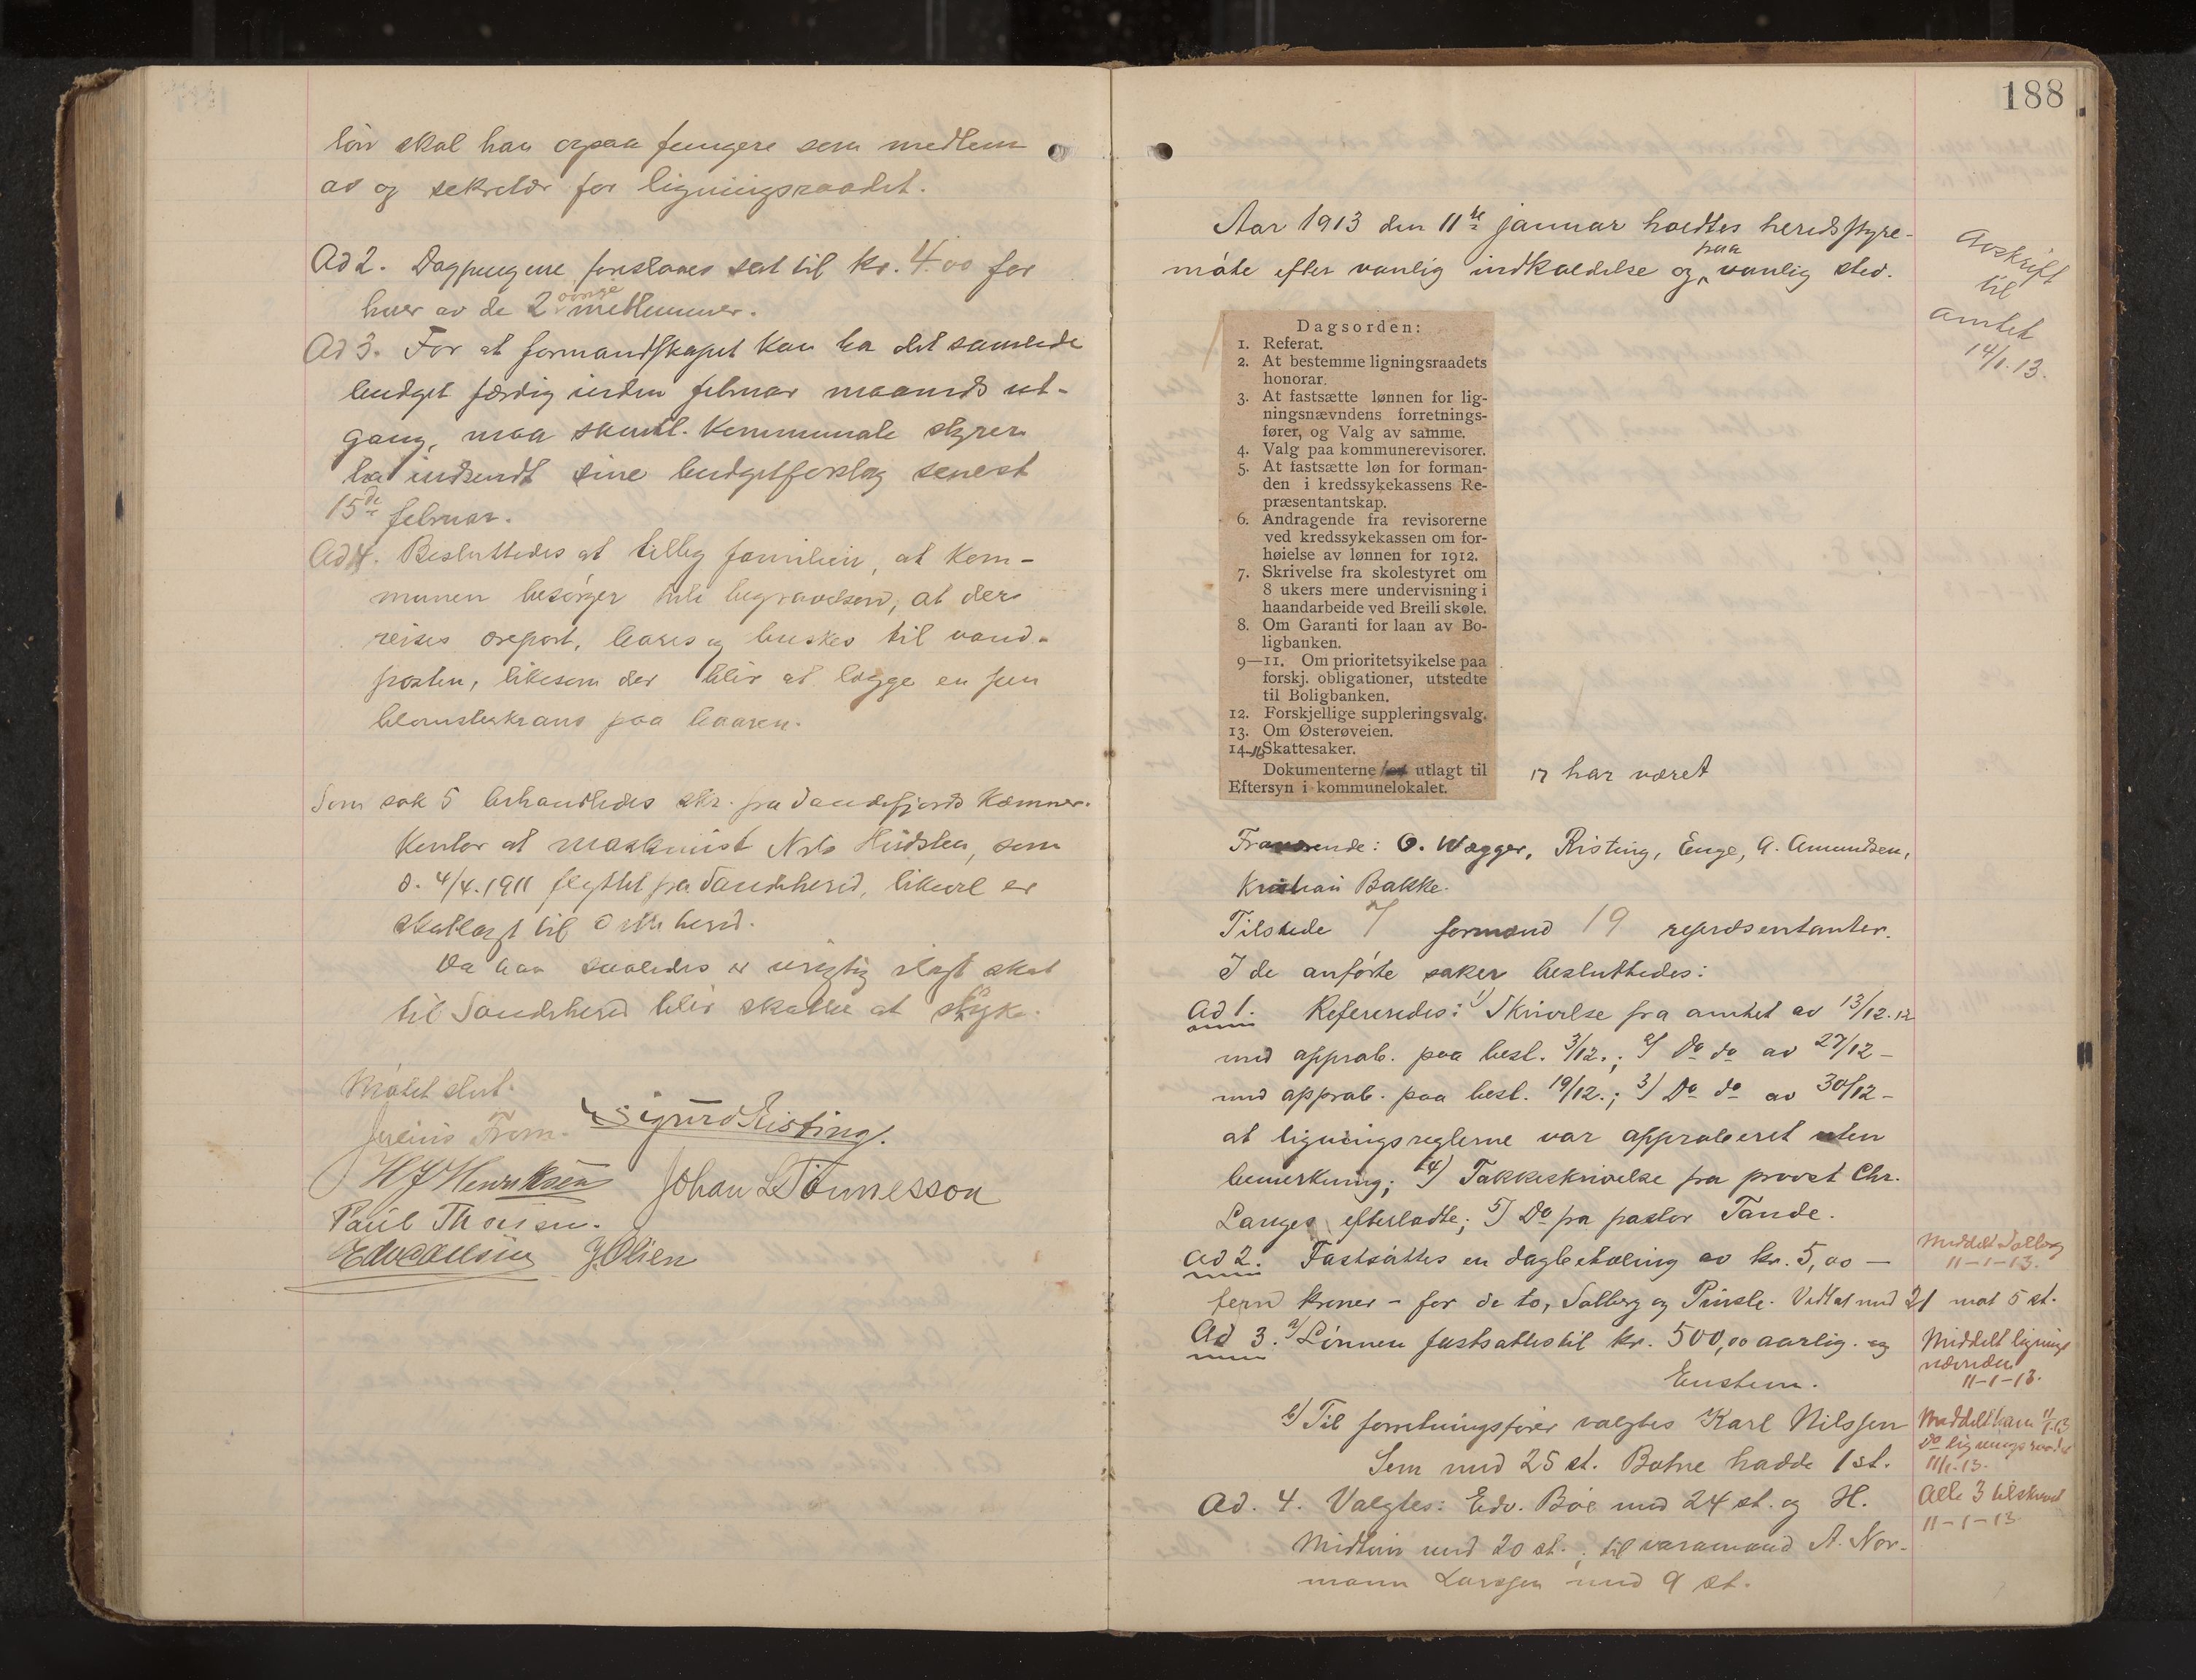 løn skal han ogsaa fungere som medlem
av og sekretær for ligningsraadet.
Ad 2. Dagpengene foreslaaes sat til kr. 4.00 for
hver av de 2 øvrige medlemmer.
Ad 3. For at formandskapet kan ha det samlede
budget færdig inden februar maaneds ut-
gang, maa samtl. kommunale styrer
ha indsendt sine budgetforslag senest
15de februar.
Ad 4. Besluttedes at tilby familien, at kom-
munen besørger hele begravelsen, at der
reises æreport, bares og buskes til vand-
posten, likesom der blir at lægge en pen
blomsterkrans paa baaren.
Som sak 5 behandledes skr. fra Sandefjords kæmner-
kontor at maskinist Nils Hidsten, som
d. 4/4.1911 flyttet fra Sandeherred, likevel er
skatlagt til dette herred.
Da han saaledes er urigtig ilagt skat
til Sandeherred blir skatten at stryke.
Møtet slut.
Julius From. Sigurd Risting.
H J Henriksen Johan L Tönnesson
Paul Thorsen.
Edv Olsen J. Olsen
188
Aar 1913 den 11te januar holdtes heredsstyre-
møte efter vanlig indkaldelse og paa vanlig sted.
Avskrift
til
amtet
14/1.13.
Dagsorden:
1. Referat.
2. At bestemme ligningsraadets
honorar.
3. At fastsætte lønnen for lig-
ningsnævndens forretnings-
fører, og Valg av samme.
4. Valg paa kommunerevisorer.
5. At fastsætte løn for forman-
den i kredssykekassens Re-
præsentantskap.
6. Andragende fra revisorerne
ved kredssykekassen om for-
høielse av lønnen for 1912.
7. Skrivelse fra skolestyret om
8 ukers mere undervisning i
haandarbeide ved Breili skole.
8. Om Garanti for laan av Bo-
ligbanken.
9—11. Om prioritetsyikelse paa
forskj. obligationer, utstedte
til Boligbanken.
12. Forskjellige suppleringsvalg.
13. Om Østerøveien.
14-16 Skattesaker.
Dokumenterne utlagt til
Eftersyn i kommunelokalet.
har været
Fraværende: O. Wegger, Risting, Enge, A. Amundsen,
Kristian Bakke.
Tilstede 7 formænd 19 repræsentanter.
I de anførte saker besluttedes:
Ad 1. Refereredes: 1) Skrivelse fra amtet av 13/12.12
med approb. paa besl. 3/12.; 2) Do do av 27/12 –
med approb. paa besl. 19/12.; 3) Do do av 30/12 –
at ligningsreglerne var approberet uten
bemerkning; 4) Takkeskrivelse fra provst Chr.
Langes efterladte; 5) Do fra pastor Tande.
Ad 2. Fastsattes en dagbetaling av kr. 5,00 —
fem kroner – for de to, Solberg og Pinsle. Vedtat med 21 mot 5 st.
Meddelt Solberg
11-1-13.
Ad 3. a) Lønnen fastsattes til kr. 500,00 aarlig. og
Enstem.
Meddelt lignings
nævnden
11-1-13.
b) Til forretningsfører valgtes Karl Nilssen
Sem med 25 st. Bohne hadde 1 st.
Meddelt ham 11/1.13
Do ligningsraadet
11/1.13.
Ad. 4. Valgtes: Edv. Bøe med 24 st. og H.
Midtun med 20 st.; til varamand A. Nor-
mann Larssen med 9 st.
Alle 3 tilskrevet
11-1-13.